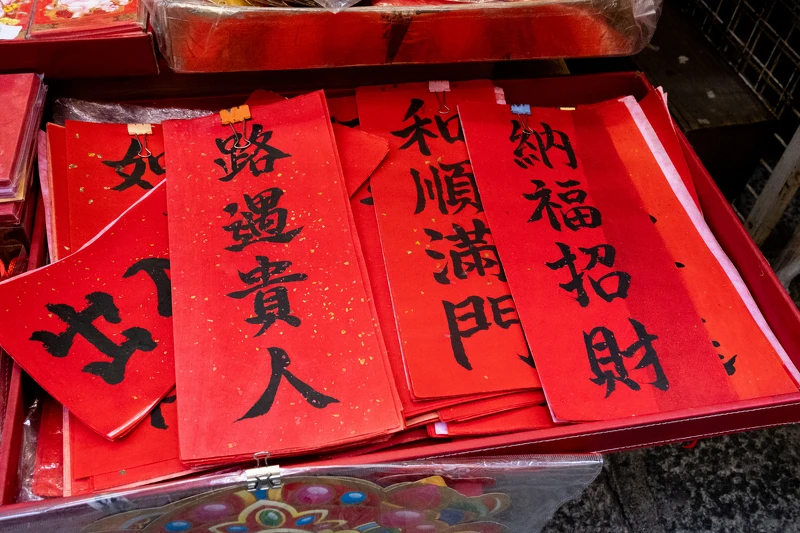 如
出
路遇貴人
和順滿門
納福招財